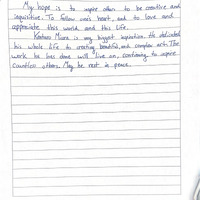 My hope is to inspire others to be creative and
inquisitive. To follow one's heart, and to love and
appreciate this world, and this life.
Kentaro Miura is my biggest inspiration. He dedicated
his whole life to creating beautiful, and complex art. The
work he has done will live on, continuing to inspire
countless others. May he rest in peace.